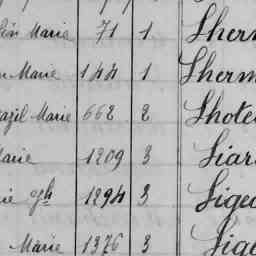 Marie 71 1 Lher
Marie 144 1 Lherm
Marie 668 2 Lhote
Marie 1209 3 Liar
1294 3 Ligeo
Marie 1376 3 Lige